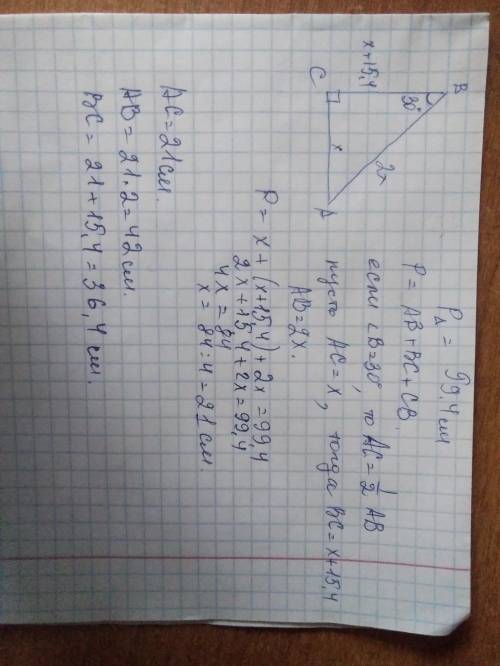 B
30°
x+15,4
2x
C
x
A
P△ = 99.4 см
P = AB + BC + CB.
если ∠B=30°, то AC = 1/2 AB
пусть AC = x, тогда BC = x+15,4
AB = 2x.
P = x + (x+15,4) + 2x = 99,4
2x + 15,4 + 2x = 99,4
4x = 84
x = 84 : 4 = 21 см.
AC = 21 см.
AB = 21·2 = 42 см.
BC = 21 + 15,4 = 36,4 см.